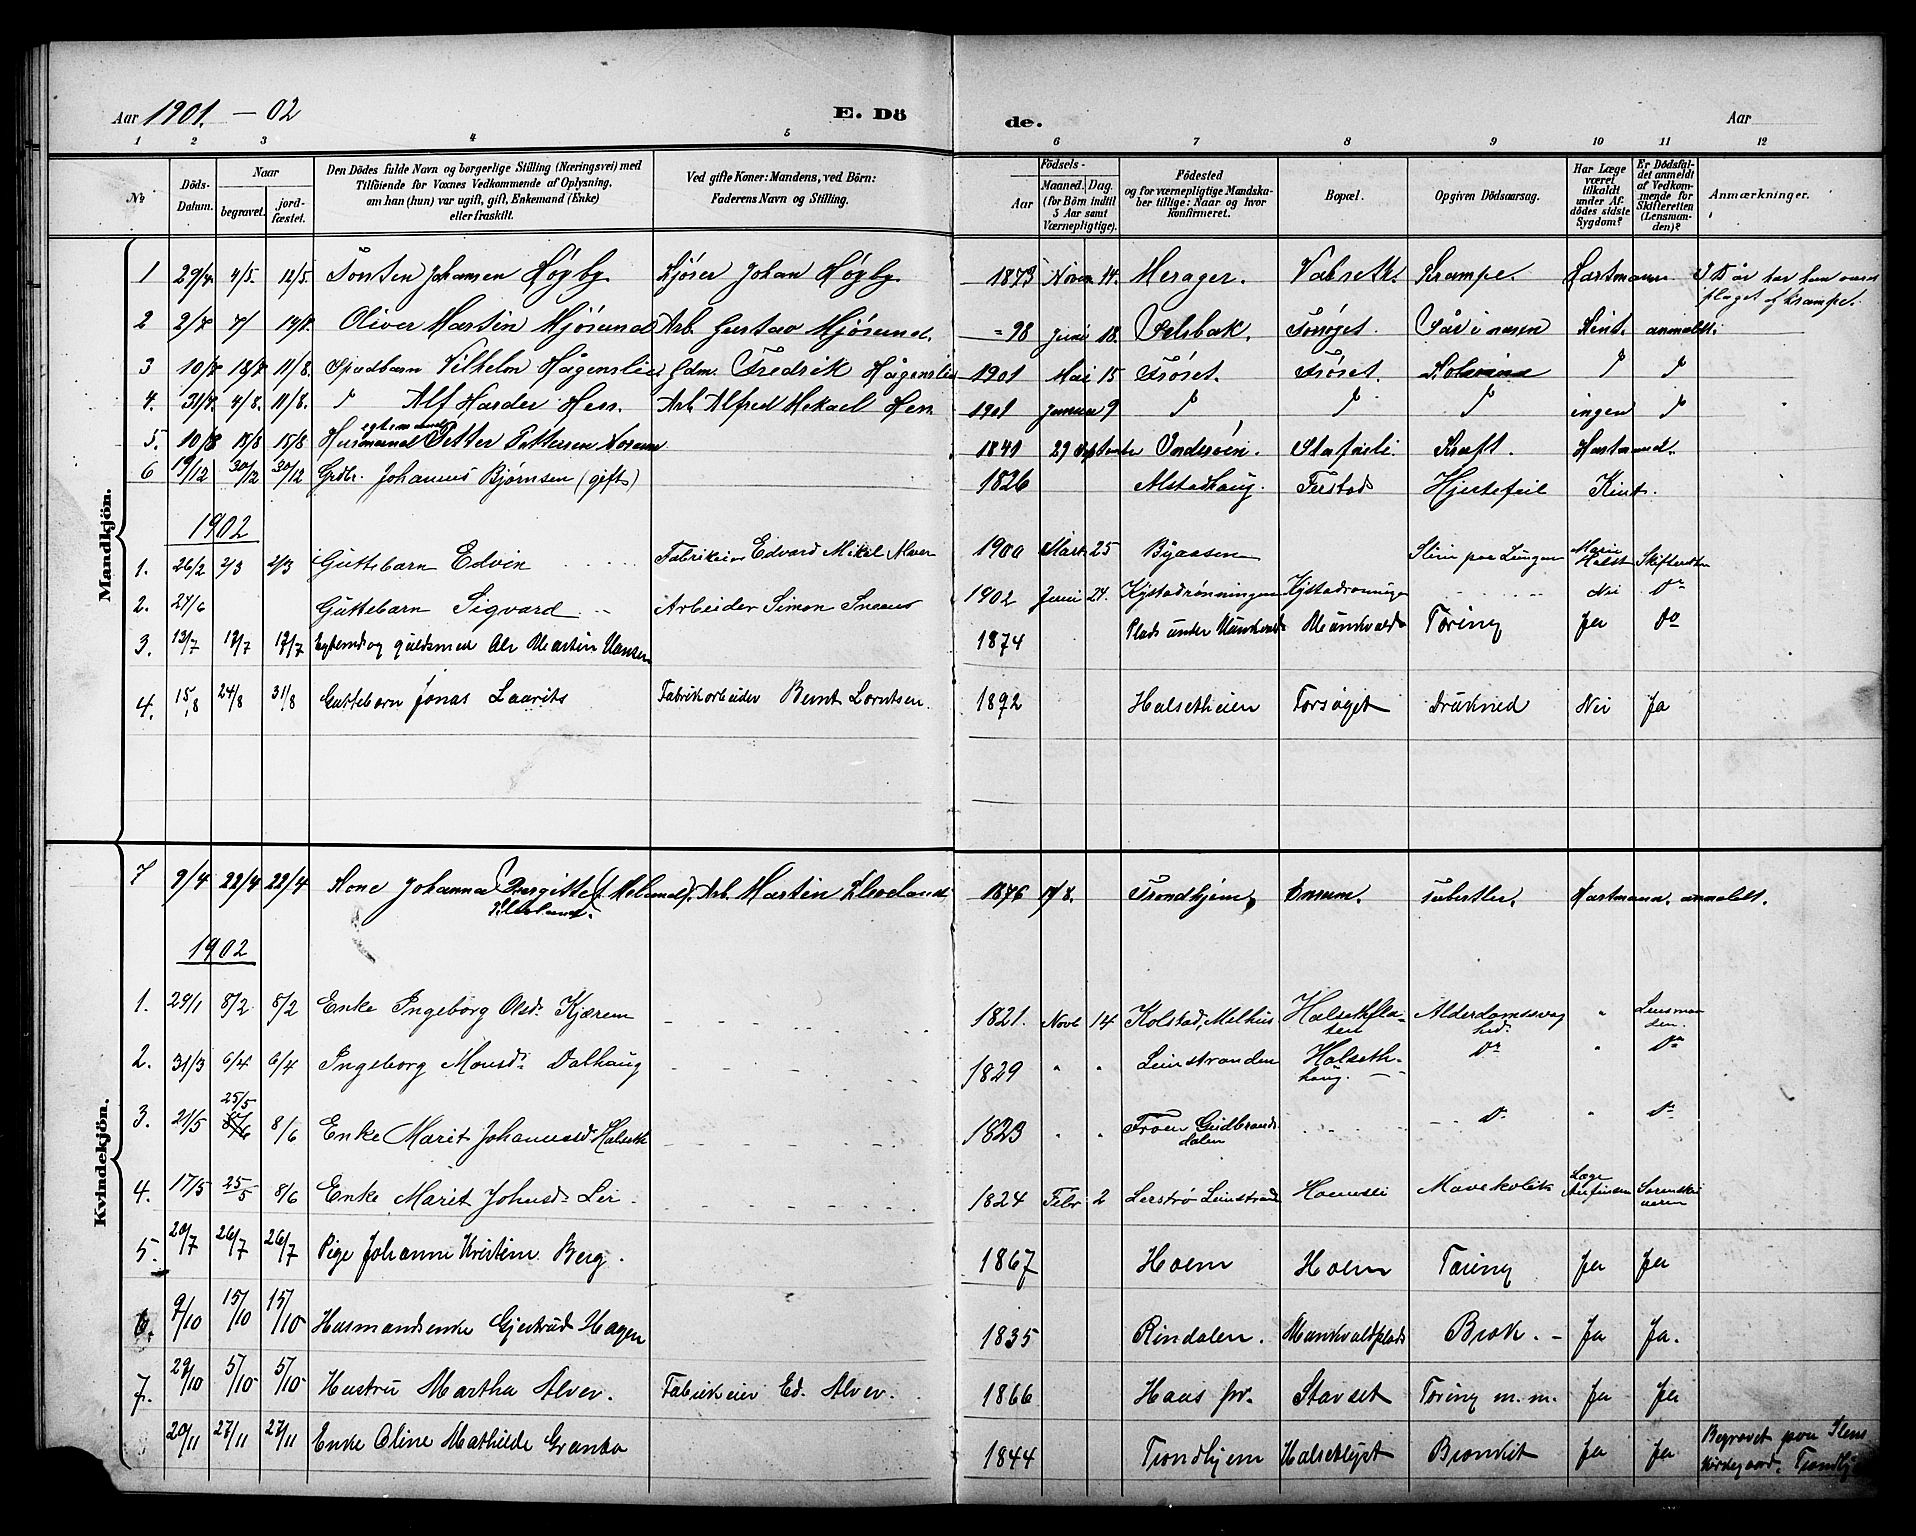 Aar 1901. - 02
E. Dö
de.
Aar
1 2 3 4 5 6 7 8 9 10 11 12
No
Döds-Datum.
Naar
begravet.
jordfæstet.
Den Dödes fulde Navn og borgerlige Stilling (Næringsvei) med
Tilföiende for Voxnes Vedkommende af Oplysning,
om han (hun) var ugift, gift, Enkemand (Enke)
eller fraskilt.
Ved gifte Koner: Mandens, ved Börn:
Faderens Navn og Stilling.
Födsels-
Aar
Maaned. Dag.
(for Börn indtil
5 Aar samt
Værnepligtige).
Födested
og for værnepligtige Mandska-
ber tillige: Naar og hvor
konfirmeret.
Bopæl.
Opgiven Dödsaarsag.
Har Læge
været
tilkaldt
under Af-
dödes sidste
Sygdom?
Er Dödsfal-
det anmeldt
af Vedkom-
mende for
Skifteretten
(Lensman-
den)?
Anmærkninger.
Mandkjön.
1 29/4. 4/5. 12/5. Johansen Høgby Kjører Johan Høgby 1873 Novem 14. Merager. Krampe. Hartmann I 15 år har han været
plaget af Krampe.
2 2/7 Oliver Martin Mjøsund Arb. Gustav Mjøsund. = 98 Juni 18. Selsbak. Forsøget. Sår i nesen Kint. anmeldt.
3 10/7 18/7 11/8. Spædbarn Vilhelm Hågenslie Gdm. Fredrik Hågenslie 1901 Mai 15 Trøset. Trøset.
4. 31/7. 4/8. 11/8. Alf Harder Hess. Arb. Alfred Mekael Hess 1901 Januar 9 ingen
egtemand
5. 10/8 15/8 Husmand Petter Pettersen 1849 29 September Inderøen. Kræft. Hartmand.
6 19/12 30/12 30/12 Grdbr. Johannes Bjørnsen (gift) 1826 Alstadhaug. Ferstad Hjertefeil Kint.
1902
1. 26/2 2/3 2/3 Guttebarn Edvin Fabrikeier Edvard Mikal Alver 1900 Mart 25 Byaasen Slim paa Lungen Marie
Holst Skifteretten
2. 24/6 Guttebarn Sigvard Arbeider Simon 1902 Juni 24. Kystadrønningen Kystadrønningen Nei Do
3. 13/7 17/7 17/7 Martin Hansen 1874 Plads under Munkvold Munkvold Tæring Ja Do
4. 15/8 24/8 31/8 Guttebarn Jonas Laarits Fabrikarbeider Bernt Lorntsen. 1892 Halsetheien Forsøget Druknet Nei Ja
Kvindekjön.
7 9/4 22/4 22/4 Kone Johanna Birgitte Arb. Martin Kleveland 1876 17/8. Trondhjem, Ensum. Tuberkler. Hartmann. anmeldt.
Kleveland
1902
1. 29/1 8/2 8/2 Enke Ingeborg Olsd. Kjærem 1821. Novb 14 Kolstad, Melhus Halsethfla-
ten Alderdomssvag
hed. " Lensman
den.
2. 31/3 6/4 6/4 Ingeborg Monsd. Dalhaug 1829 " " Leinstranden Halseth-
haug. Do " Do
25/5
3. 21/5 8/6 8/6 Enke Marit Johannesd Halseth 1823 " " Froen Gudbrands
dalen Do " Do
4. 17/5 25/5 8/6 Enke Marit Johnsd. Ler 1824 Febr 2 Leinstrand Mavekolik Læge
Sorenskri
veren
5. 20/7 26/7 26/7 Pige Johanne Kristine Berg. 1867 Holm Holm Tæring Ja Ja
6. 9/10 15/10 15/10 Husmandsenke Gjertrud Hagen 1835 Rindalen. Munkvoldplads Brok. - Ja Ja.
7. 29/10 5/10 5/10 Hustru Martha Alver. Fabrikeier Ed. Alver. 1866 Haus pr. Stavset Tæring m. m. Ja Ja
20/11 27/11 27/11 Enke Oline Mathilde Granbo 1844 Trondhjem Bronkit Ja Ja Begravet paa Ilens
Kirkegaard. Trondhj